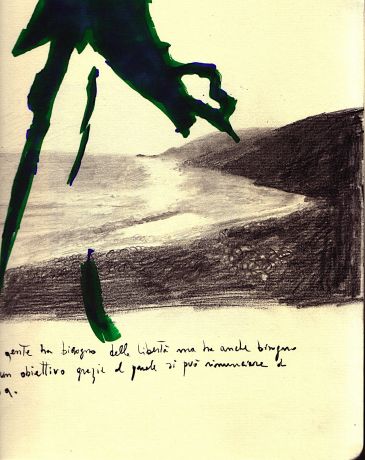 gente ha bisogno della libertà ma ha anche bisogno
un obiettivo grazie al quale si può rinunciare a